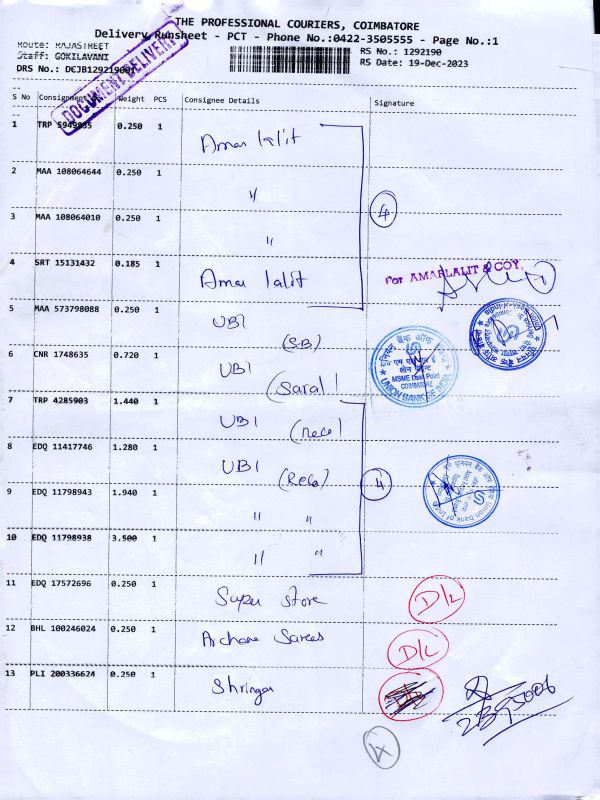 THE PROFESSIONAL COURIERS, COIMBATORE
Delivery Runsheet - PCT - Phone No.:0422-3505555 - Page No.:1
Route: RAJASTREET
Staff: GOKILAVANI
DRS No.: DCJB1292190
RS No.: 1292190
RS Date: 19-Dec-2023
DOCUMENT DELIVERY
S No Consignment Weight PCS Consignee Details Signature
1 TRP 5949885 0.250 1 Amar lalit
2 MAA 108064644 0.250 1 "
3 MAA 108064010 0.250 1 "
4
4 SRT 15131432 0.185 1 Amar lalit
For AMARLALIT & COY.
5 MAA 573798088 0.250 1 UBI (SB)
6 CNR 1748635 0.720 1 UBI (Saral)
यूनियन बैंक ऑफ इंडिया
एम एस एम ई
लोन पॉइन्ट
MSME Loan Point
COIMBATORE
UNION BANK OF INDIA
7 TRP 4285903 1.440 1 UBI
8 EDQ 11417746 1.280 1 UBI
4
Union bank of India
9 EDQ 11798943 1.940 1 " "
10 EDQ 11798938 3.500 1 " "
11 EDQ 17572696 0.250 1 Super Store D/L
12 BHL 100246024 0.250 1 Archana Sarees D/L
13 PLI 200336624 0.250 1 Shringar
4